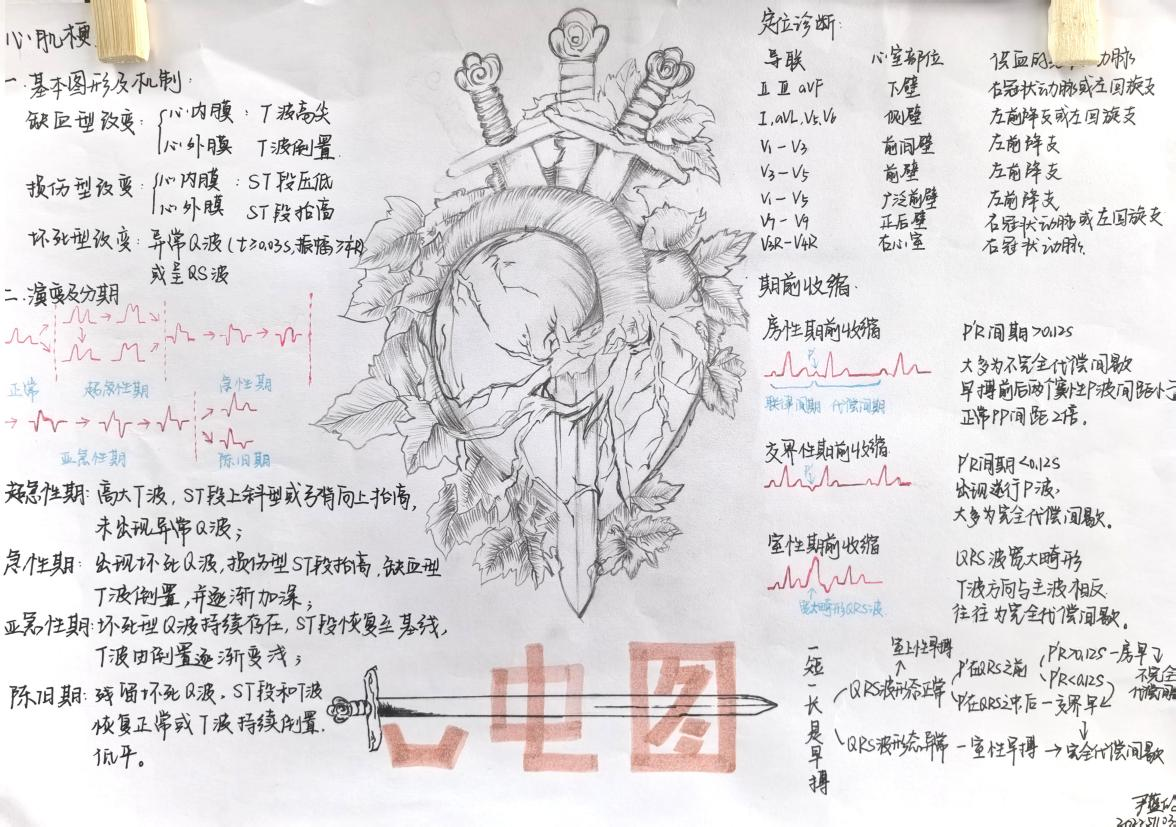 心肌梗
一.基本图形及机制:
缺血型改变: 心内膜: T波高尖
心外膜 T波倒置
损伤型改变: 心内膜: ST段压低
心外膜 ST段抬高
坏死型改变: 异常Q波(t≥0.03s,振幅≥¼R)
或呈QS波
二.演变及分期
正常 超急性期 急性期
亚急性期 陈旧期
超急性期: 高大T波, ST段上斜型或弓背向上抬高,
未出现异常Q波;
急性期: 出现坏死Q波,损伤型ST段抬高,缺血型
T波倒置,并逐渐加深;
亚急性期:坏死型Q波持续存在,ST段恢复至基线,
T波由倒置逐渐变浅;
陈旧期: 残留坏死Q波, ST段和T波
恢复正常或T波持续倒置.
低平。
心电图
定位诊断:
导联 心室部位 供血的 动脉
Ⅱ Ⅲ aVF 下壁 右冠状动脉或左回旋支
I,aVL,V5,V6 侧壁 左前降支或左回旋支
V1-V3 前间壁 左前降支
V3-V5 前壁 左前降支
V1-V5 广泛前壁 左前降支
V7-V9 正后壁 右冠状动脉或左回旋支
V3R-V4R 右心室 右冠状动脉.
期前收缩.
房性期前收缩 P'R间期>0.12s
大多为不完全代偿间歇
早搏前后两个窦性P波间距小于
正常PP间距2倍。
P'
联律间期 代偿间期
交界性期前收缩 P'R间期<0.12s
出现逆行P'波,
大多为完全代偿间歇。
室性期前收缩 QRS波宽大畸形
T波方向与主波相反
往往为完全代偿间歇。
宽大畸形QRS波
一短一长是早搏
室上性早搏
QRS波形态正常 P'在QRS之前 P'R>0.12s-房早
P'R<0.12s 不完全
P'在QRS之中后-交界早
QRS波形态异常-室性早搏→完全代偿间歇